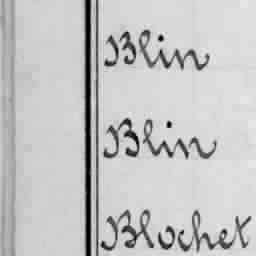 Blin
Blin
Blochet